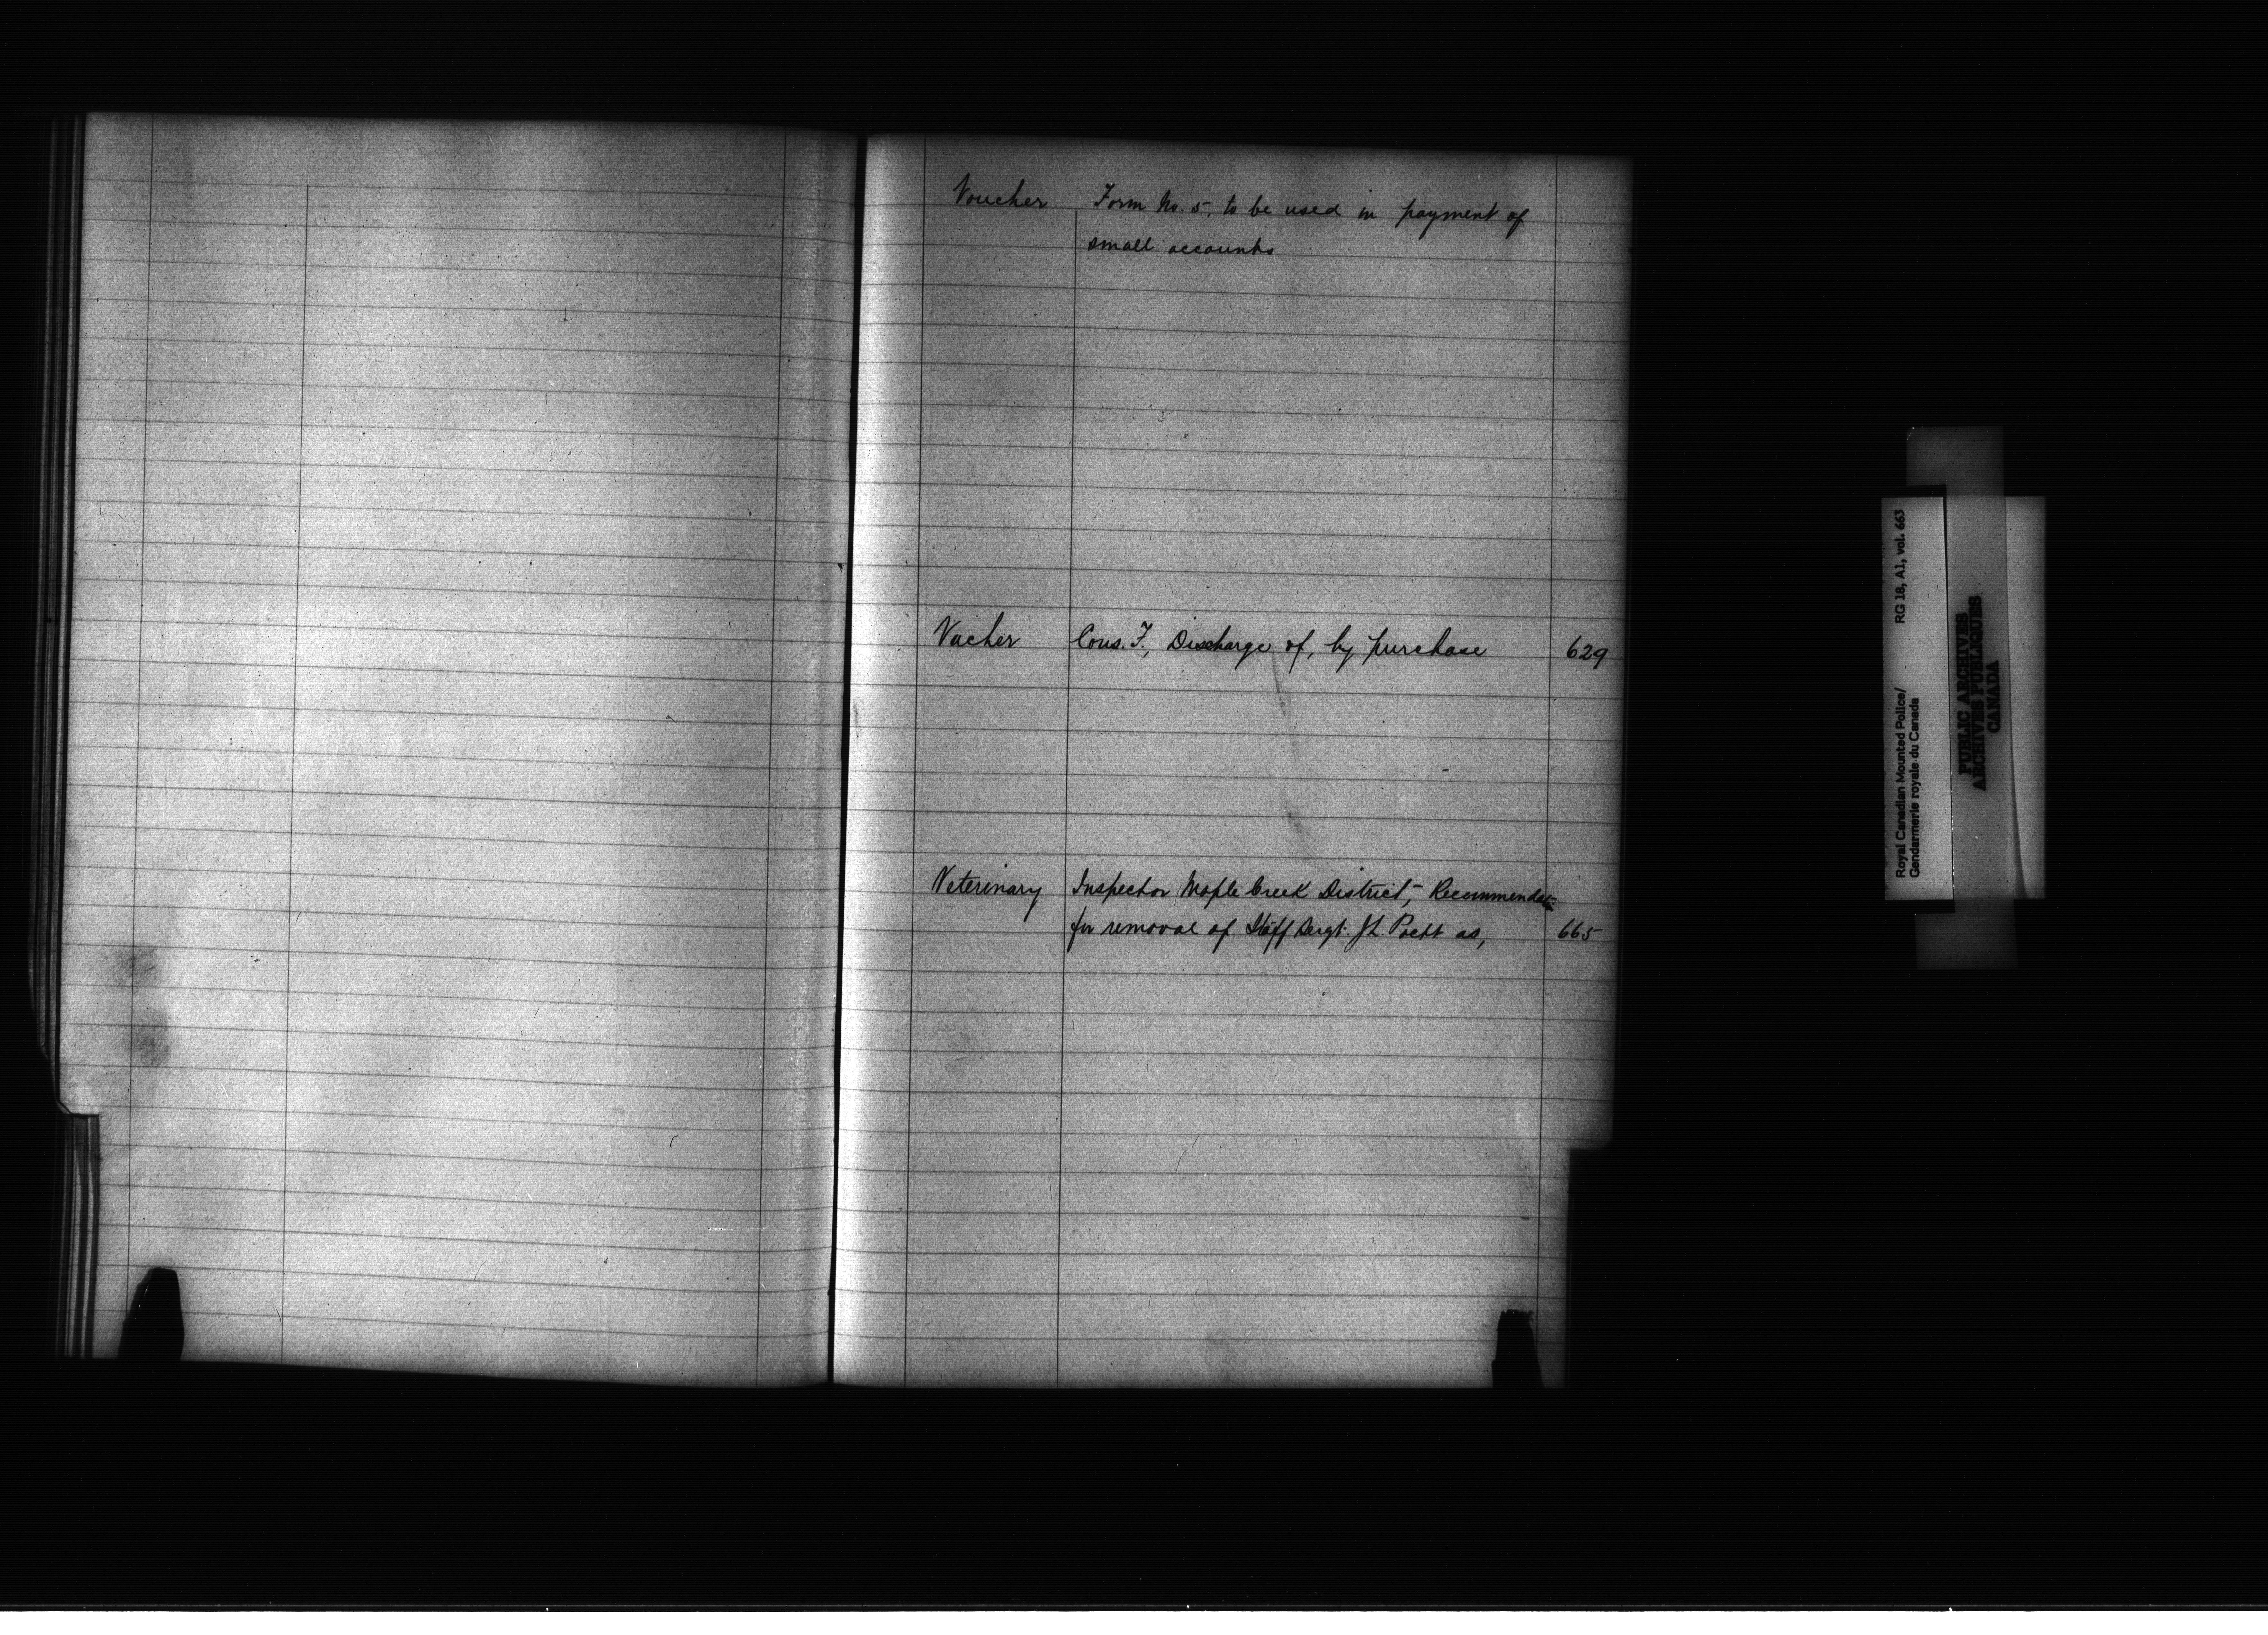 Voucher Form No. 5, to be used in payment of
small accounts
Vacher Cons. F., Discharge of, by purchase 629
Veterinary Inspector Maple Creek District, Recommendat
for removal of Staff Sergt. J.L. Poett as, 665
Royal Canadian Mounted Police/ RG 18, A1, vol. 663
Gendarmerie royale du Canada
PUBLIC ARCHIVES
ARCHIVES PUBLIQUES
CANADA